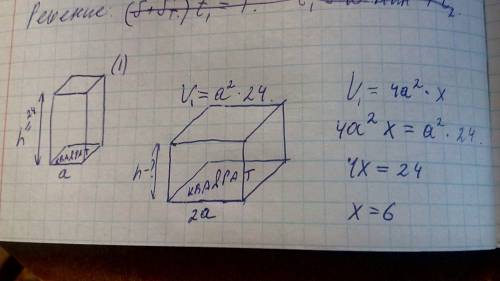 Решение. (5+5x) t₁ = 1.
(1)
24
h
КВАДРАТ
a
V₁ = a² · 24.
h-?
КВАДРАТ
2a
V₁ = 4a² · x
4a² x = a² · 24.
4x = 24
x = 6